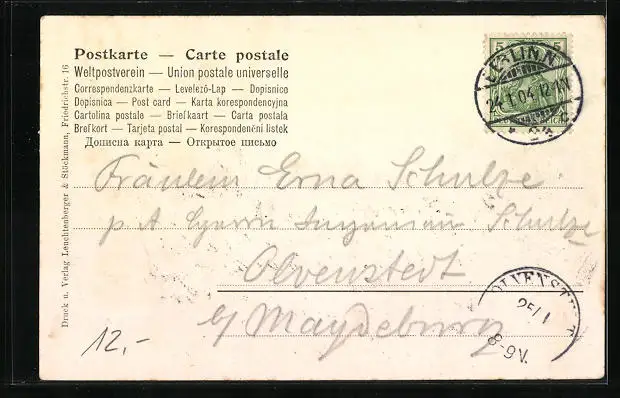 Postkarte — Carte postale
Weltpostverein — Union postale universelle
Correspondenzkarte — Levelező-Lap — Dopisnice
Dopisnica — Post card — Karta korespondencyjna
Cartolina postale — Briefkaart — Carta postala
Brefkort — Tarjeta postal — Korespondenčni listek
Дописна карта — Открытое письмо
Druck u. Verlag Leuchtenberger & Stöckmann, Friedrichstr. 16
5 5
BERLIN N.
24.1.04.12-1N
Fräulein Erna Schulze
p A Herrn Ingenieur Schulze
Olvenstedt
b/ Magdeburg
OLVENST
25/1
8-9V.
12,-